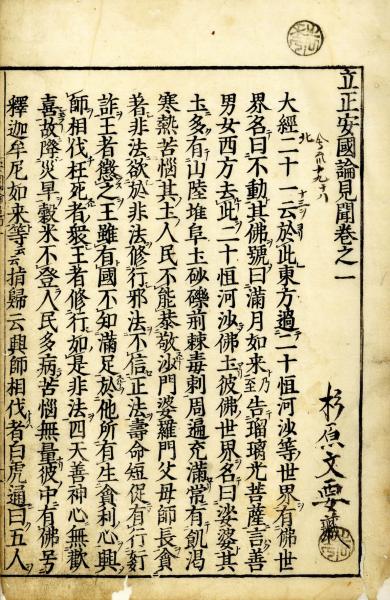 立正安國論見聞卷之一
大經二十一云於此東方過二十恒河沙等世界有佛世
界名曰不動其佛號曰滿月如來乃至告瑠璃光菩薩言善
男女西方去此二十恒河沙佛土彼佛世界名曰娑婆其
土多有山陵堆阜土砂礫荊棘毒刺周遍充滿常有飢渴
寒熱苦惱其土人民不能恭敬沙門婆羅門父母師長貪
著非法欲於非法修行邪法不信正法壽命短促有行姧
詐王者懲之王雖有國不知滿足於他所有生貪利心興
師相伐枉死者衆王者修行如是非法四天善神心無歡
喜故降災旱穀米不登人民多病苦惱無量彼中有佛号
釋迦牟尼如來等云云指歸云興師相伐者白虎通曰五人
杉原文要藏